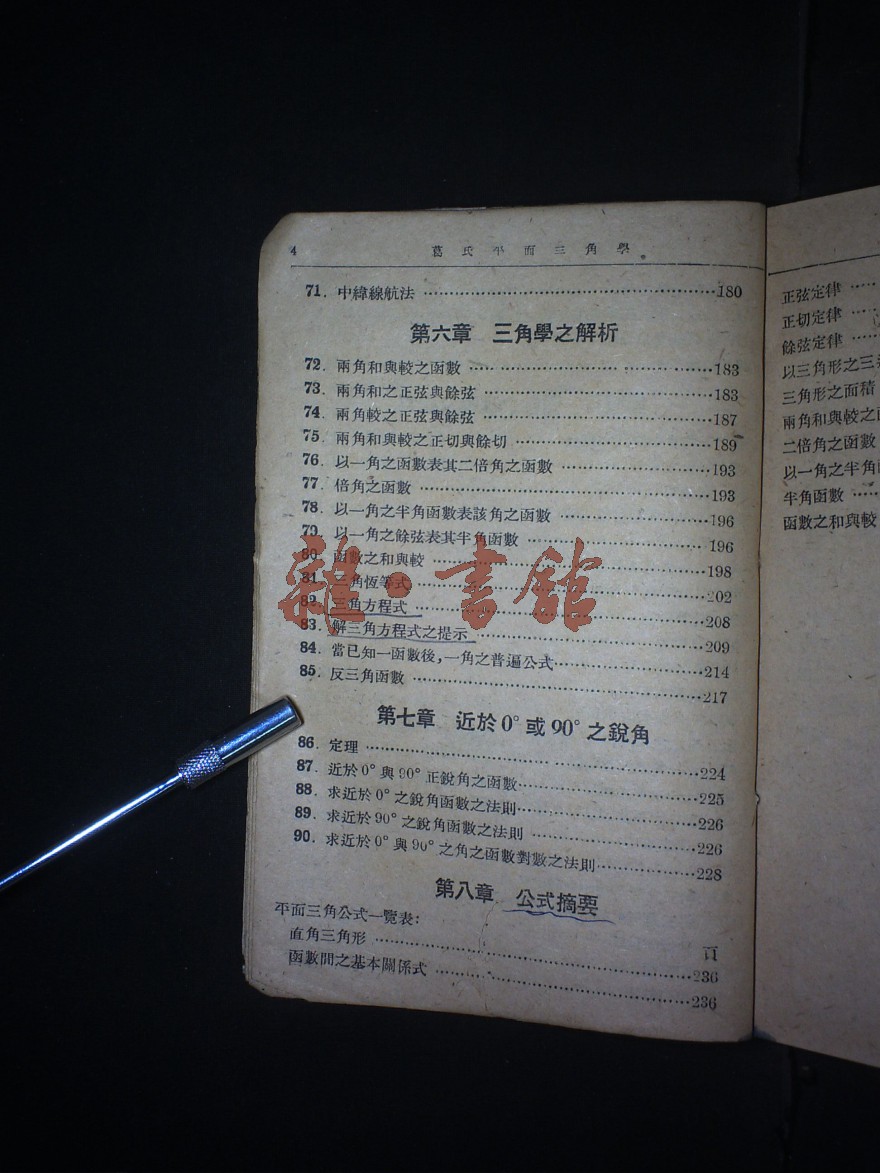 4 葛氏平面三角學
71. 中緯線航法 180
第六章 三角學之解析
72. 兩角和與較之函數 183
73. 兩角和之正弦與餘弦 183
74. 兩角較之正弦與餘弦 187
75. 兩角和與較之正切與餘切 189
76. 以一角之函數表其二倍角之函數 193
77. 倍角之函數 193
78. 以一角之半角函數表該角之函數 196
79. 以一角之餘弦表其半角函數 196
80. 函數之和與較 198
81. 三角恆等式 202
82. 三角方程式 208
83. 解三角方程式之提示 209
84. 當已知一函數後,一角之普遍公式 214
85. 反三角函數 217
第七章 近於0°或90°之銳角
86. 定理 224
87. 近於0°與90°正銳角之函數 225
88. 求近於0°之銳角函數之法則 226
89. 求近於90°之銳角函數之法則 226
90. 求近於0°與90°之角之函數對數之法則 228
第八章 公式摘要
平面三角公式一覽表:
頁
直角三角形 236
函數間之基本關係式 236
雜·書館
正弦定律
正切定律
餘弦定律
以三角形之三
三角形之面積
兩角和與較之
二倍角之函數
以一角之半角
半角函數
函數之和與較